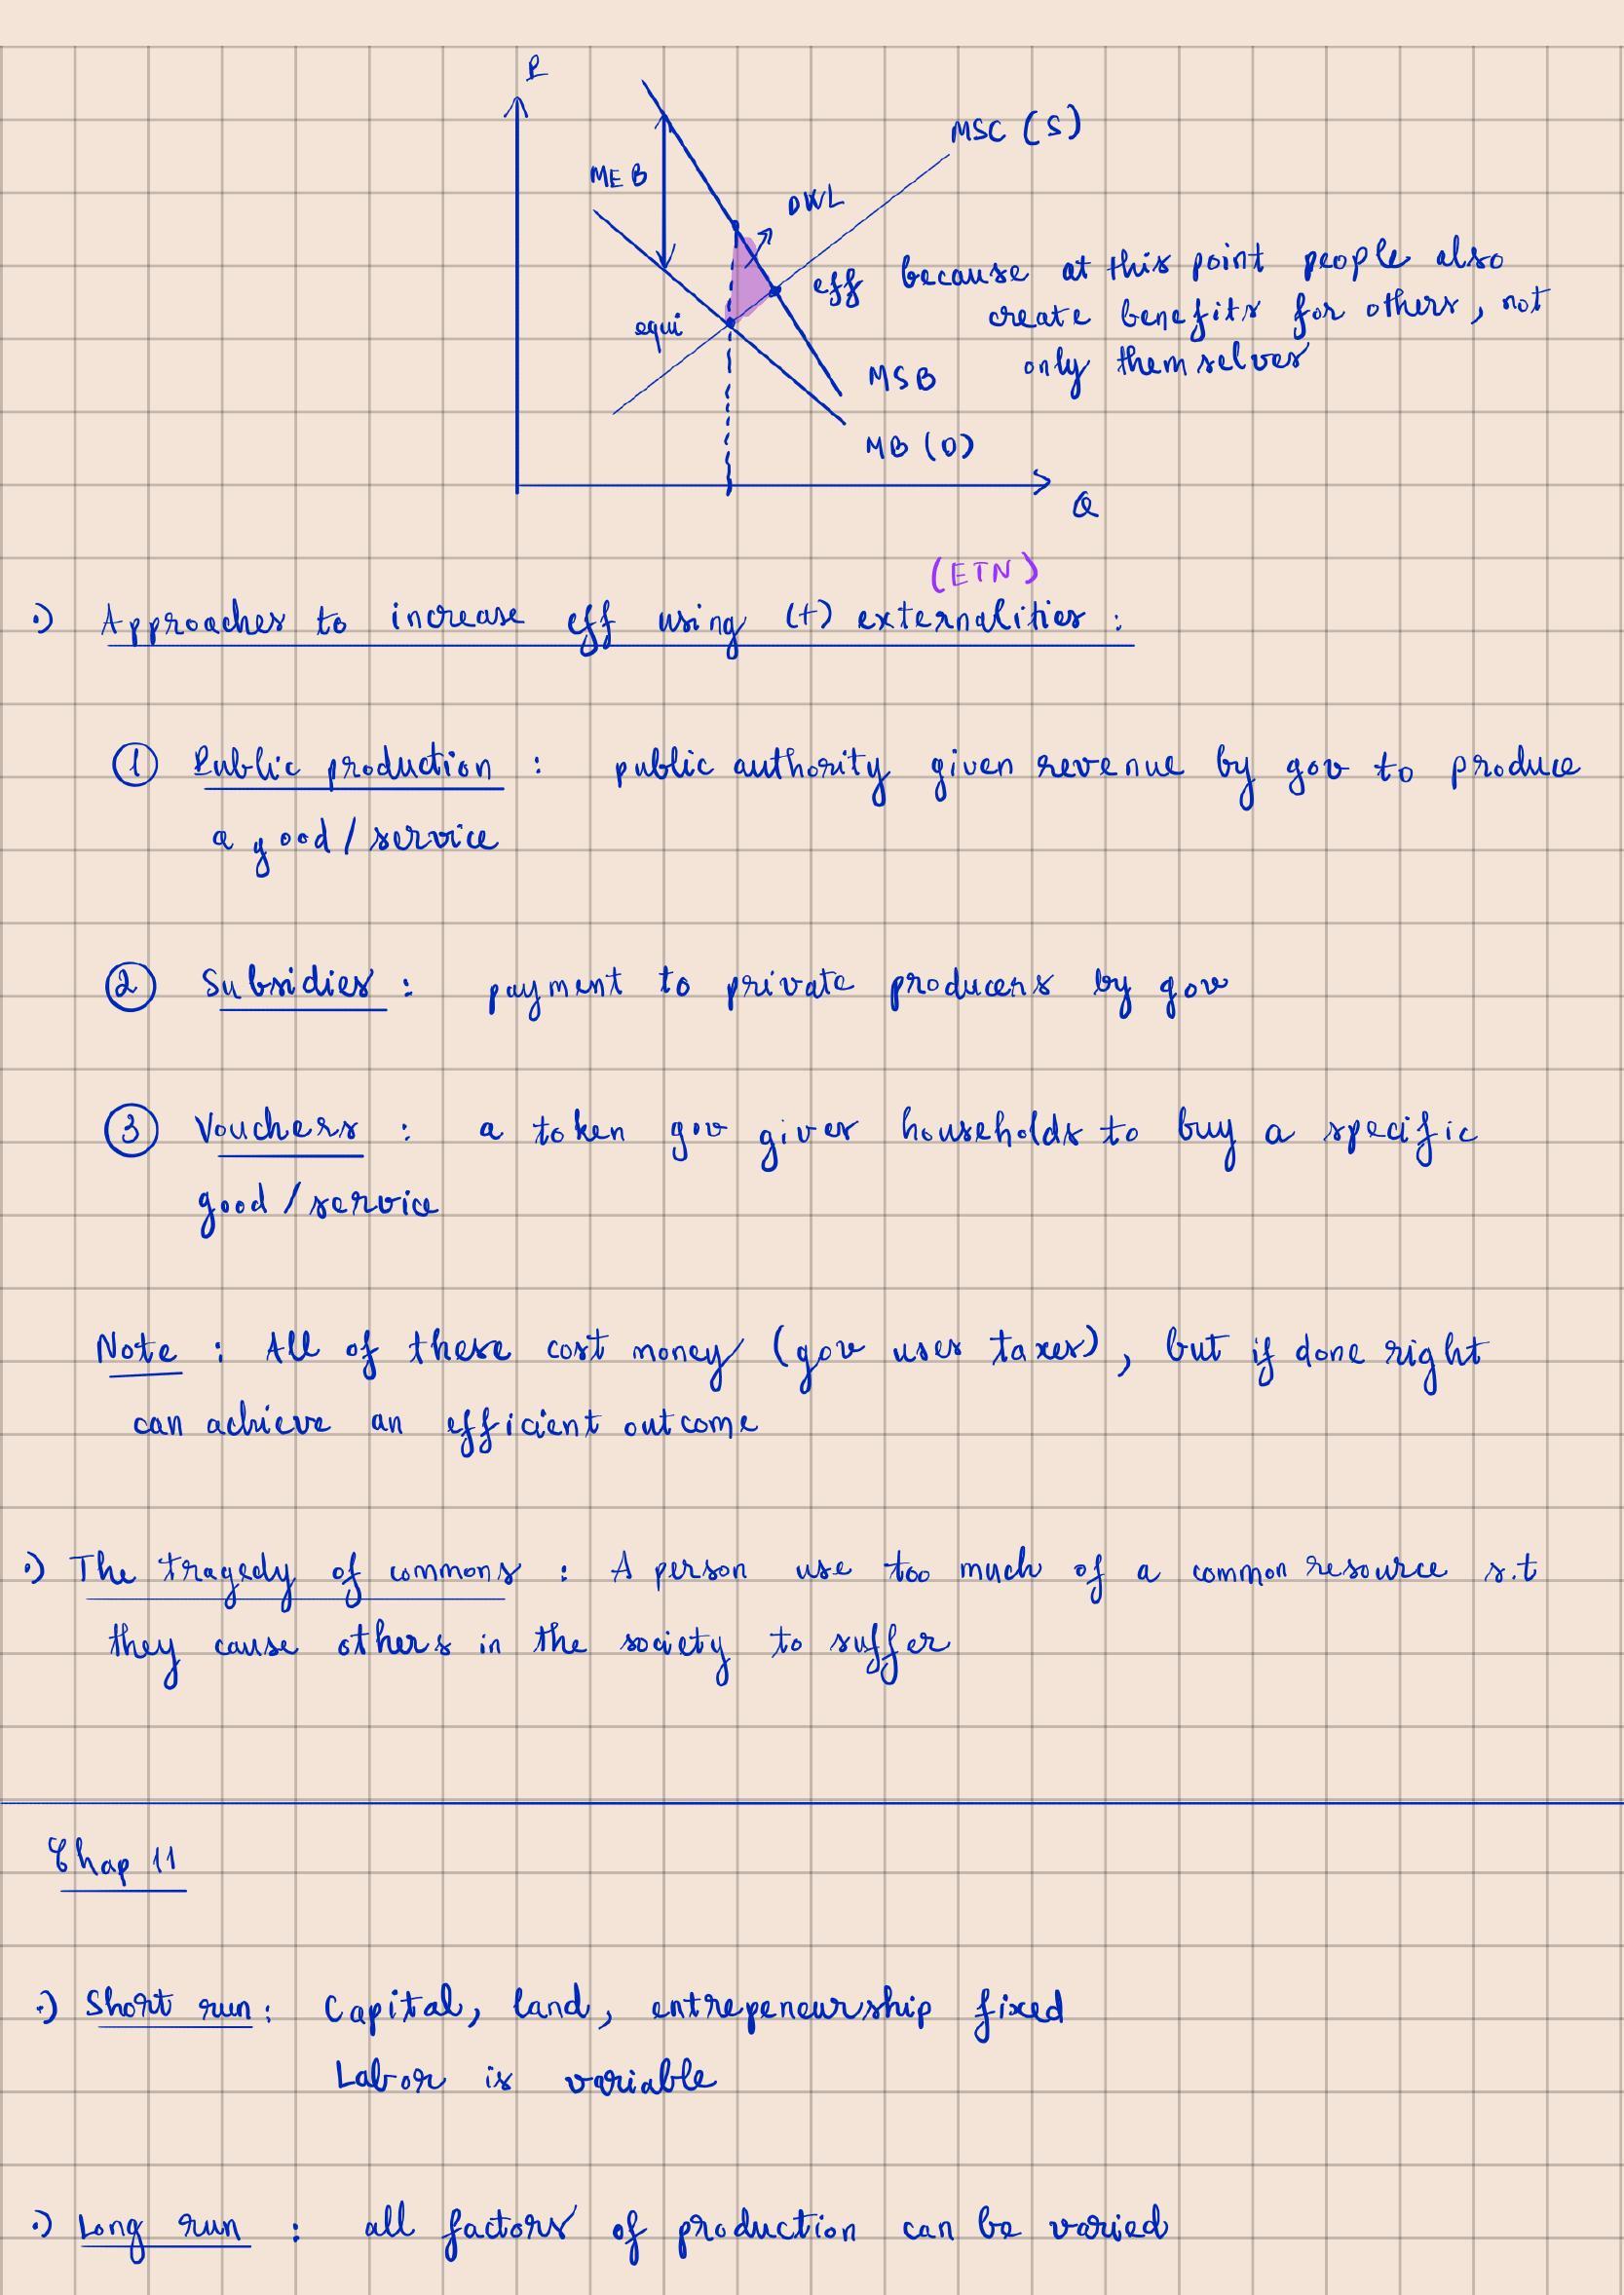 P
MSC (S)
MEB
DWL
eff because at this point people also
create benefits for others, not
only themselves
equi
MSB
MB (D)
Q
(ETN)
:) Approaches to increase eff using (+) externalities :
① Public production : public authority given revenue by gov to produce
a good / service
② Subsidies : payment to private producers by gov
③ Vouchers : a token gov gives households to buy a specific
good / service
Note : All of these cost money (gov uses taxes), but if done right
can achieve an efficient outcome
:) The tragedy of commons : A person use too much of a common resource s.t
they cause others in the society to suffer
Chap 11
:) Short run : Capital, land, entrepeneurship fixed
Labor is variable
:) Long run : all factors of production can be varied